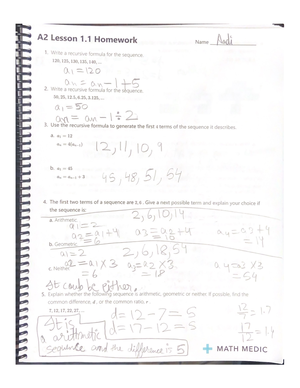 A2 Lesson 1.1 Homework
Name Andi
1. Write a recursive formula for the sequence.
120, 125, 130, 135, 140, ...
a₁=120
aₙ = aₙ-1+5
2. Write a recursive formula for the sequence.
50, 25, 12.5, 6.25, 3.125, ...
a₁=50
aₙ = aₙ-1÷2
3. Use the recursive formula to generate the first 4 terms of the sequence it describes.
a. a₁ = 12
12,11,10,9
b. a₁ = 45
aₙ = aₙ₋₁ + 3
45,48,51,54
4. The first two terms of a sequence are 2, 6. Give a next possible term and explain your choice if
the sequence is:
2,6,10,14
a. Arithmetic
a₁=2
a₂=a₁+4
=6
a₄=a₃+4
=14
b. Geometric
2,6,18,54
a₁=2
a₂=a₁×3
=6
a₃=a₂×3
=18
=54
c. Neither
It could be either.
5. Explain whether the following sequence is arithmetic, geometric, or neither. If possible, find the
common difference, d, or the common ratio, r.
7, 12, 17, 22, 27, ...
It is
a arithmetic
sequence and the difference is 5
d=12-7=5
d=17-12=5
12/7=1.7
17/12=1.4
MATH MEDIC